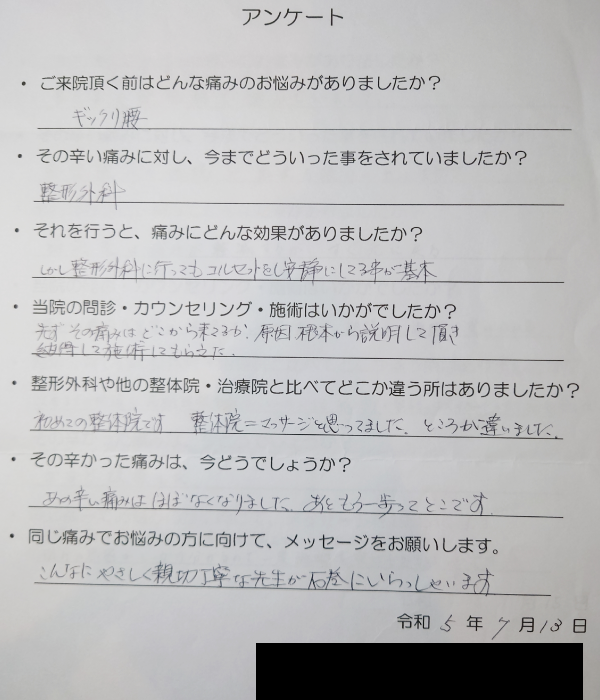 アンケート
・ご来院頂く前はどんな痛みのお悩みがありましたか？
ギックリ腰
・その辛い痛みに対し、今までどういった事をされていましたか？
整形外科
・それを行うと、痛みにどんな効果がありましたか？
しかし整形外科に行ってもコルセットをし安静にしてる事が基本
・当院の問診・カウンセリング・施術はいかがでしたか？
先ず その痛みは どこから来てるか、原因 根本から説明して頂き
納得して施術してもらえた。
・整形外科や他の整体院・治療院と比べてどこか違う所はありましたか？
初めての整体院です 整体院＝マッサージと思ってました。ところが違いました。
・その辛かった痛みは、今どうでしょうか？
あの辛い痛みはほぼなくなりました。あともう一歩ってとこです。
・同じ痛みでお悩みの方に向けて、メッセージをお願いします。
こんなにやさしく親切丁寧な先生が石巻にいらっしゃいます
令和 5 年 7 月 13 日